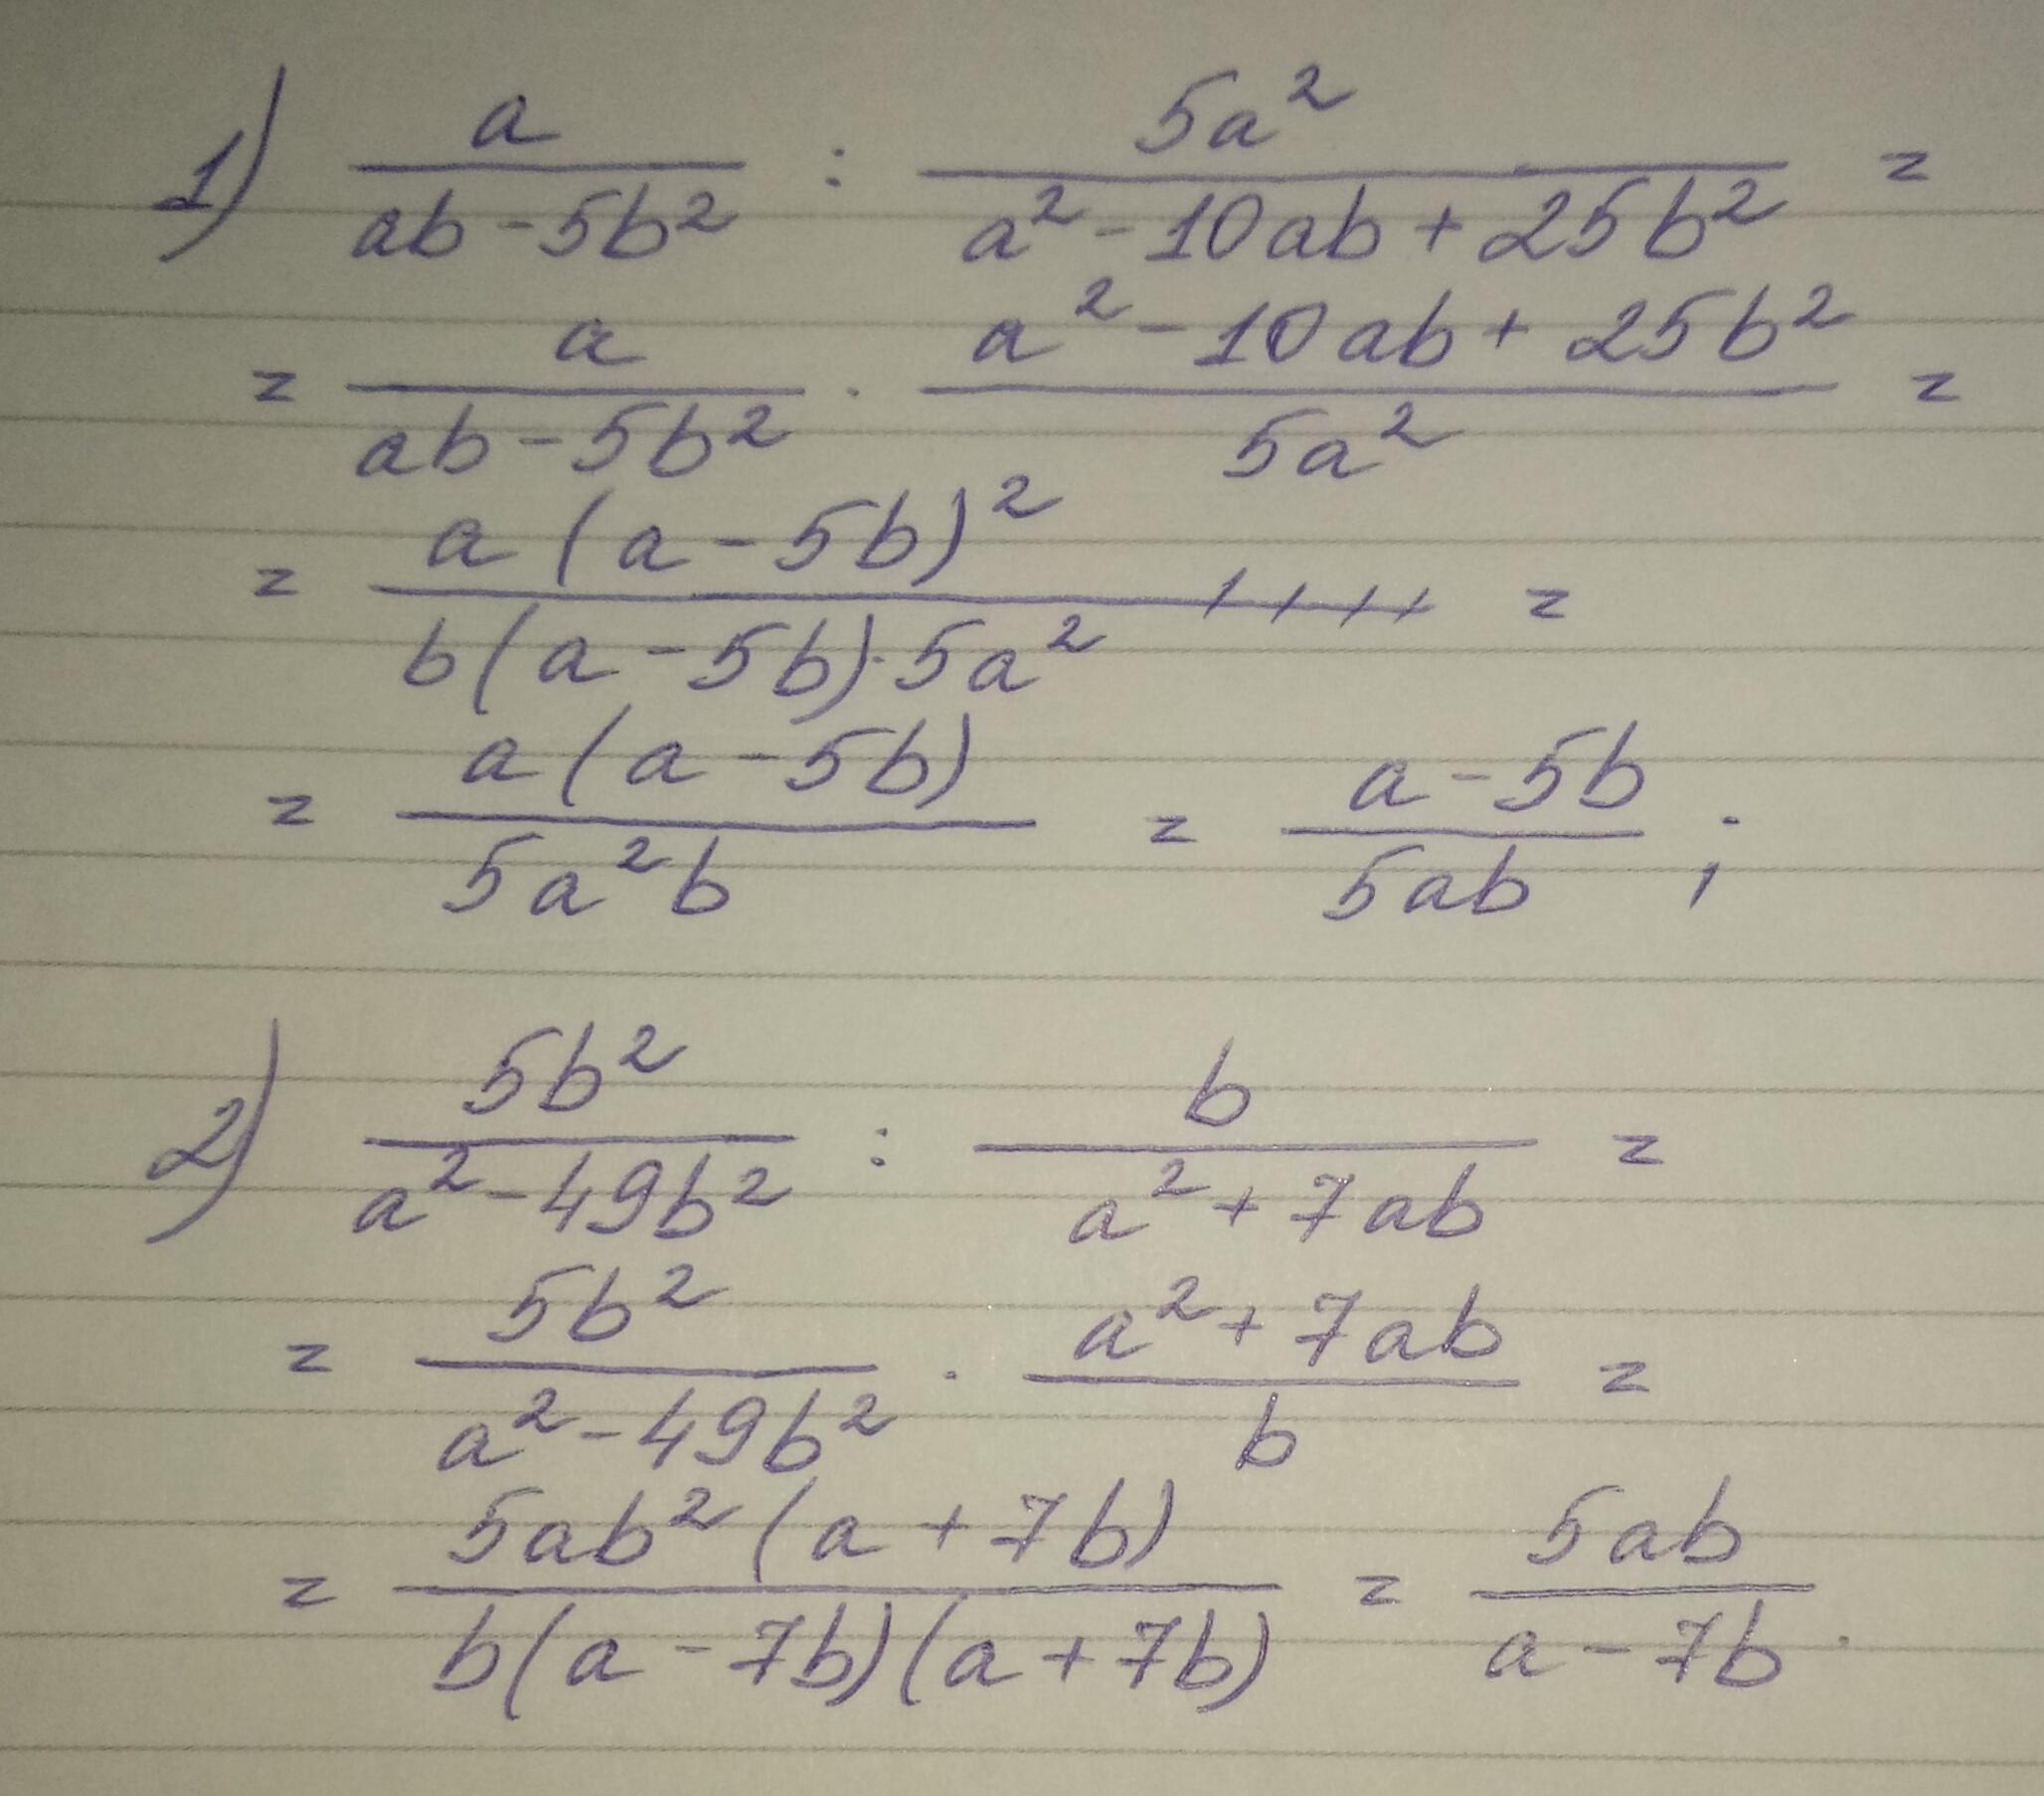 1) a/(ab-5b²) : 5a²/(a²-10ab+25b²) =
= a/(ab-5b²) · (a²-10ab+25b²)/5a² =
= a(a-5b)²/(b(a-5b)·5a²) =
= a(a-5b)/5a²b = (a-5b)/5ab ;
2) 5b²/(a²-49b²) : b/(a²+7ab) =
= 5b²/(a²-49b²) · (a²+7ab)/b =
= 5ab²(a+7b)/(b(a-7b)(a+7b)) = 5ab/(a-7b).